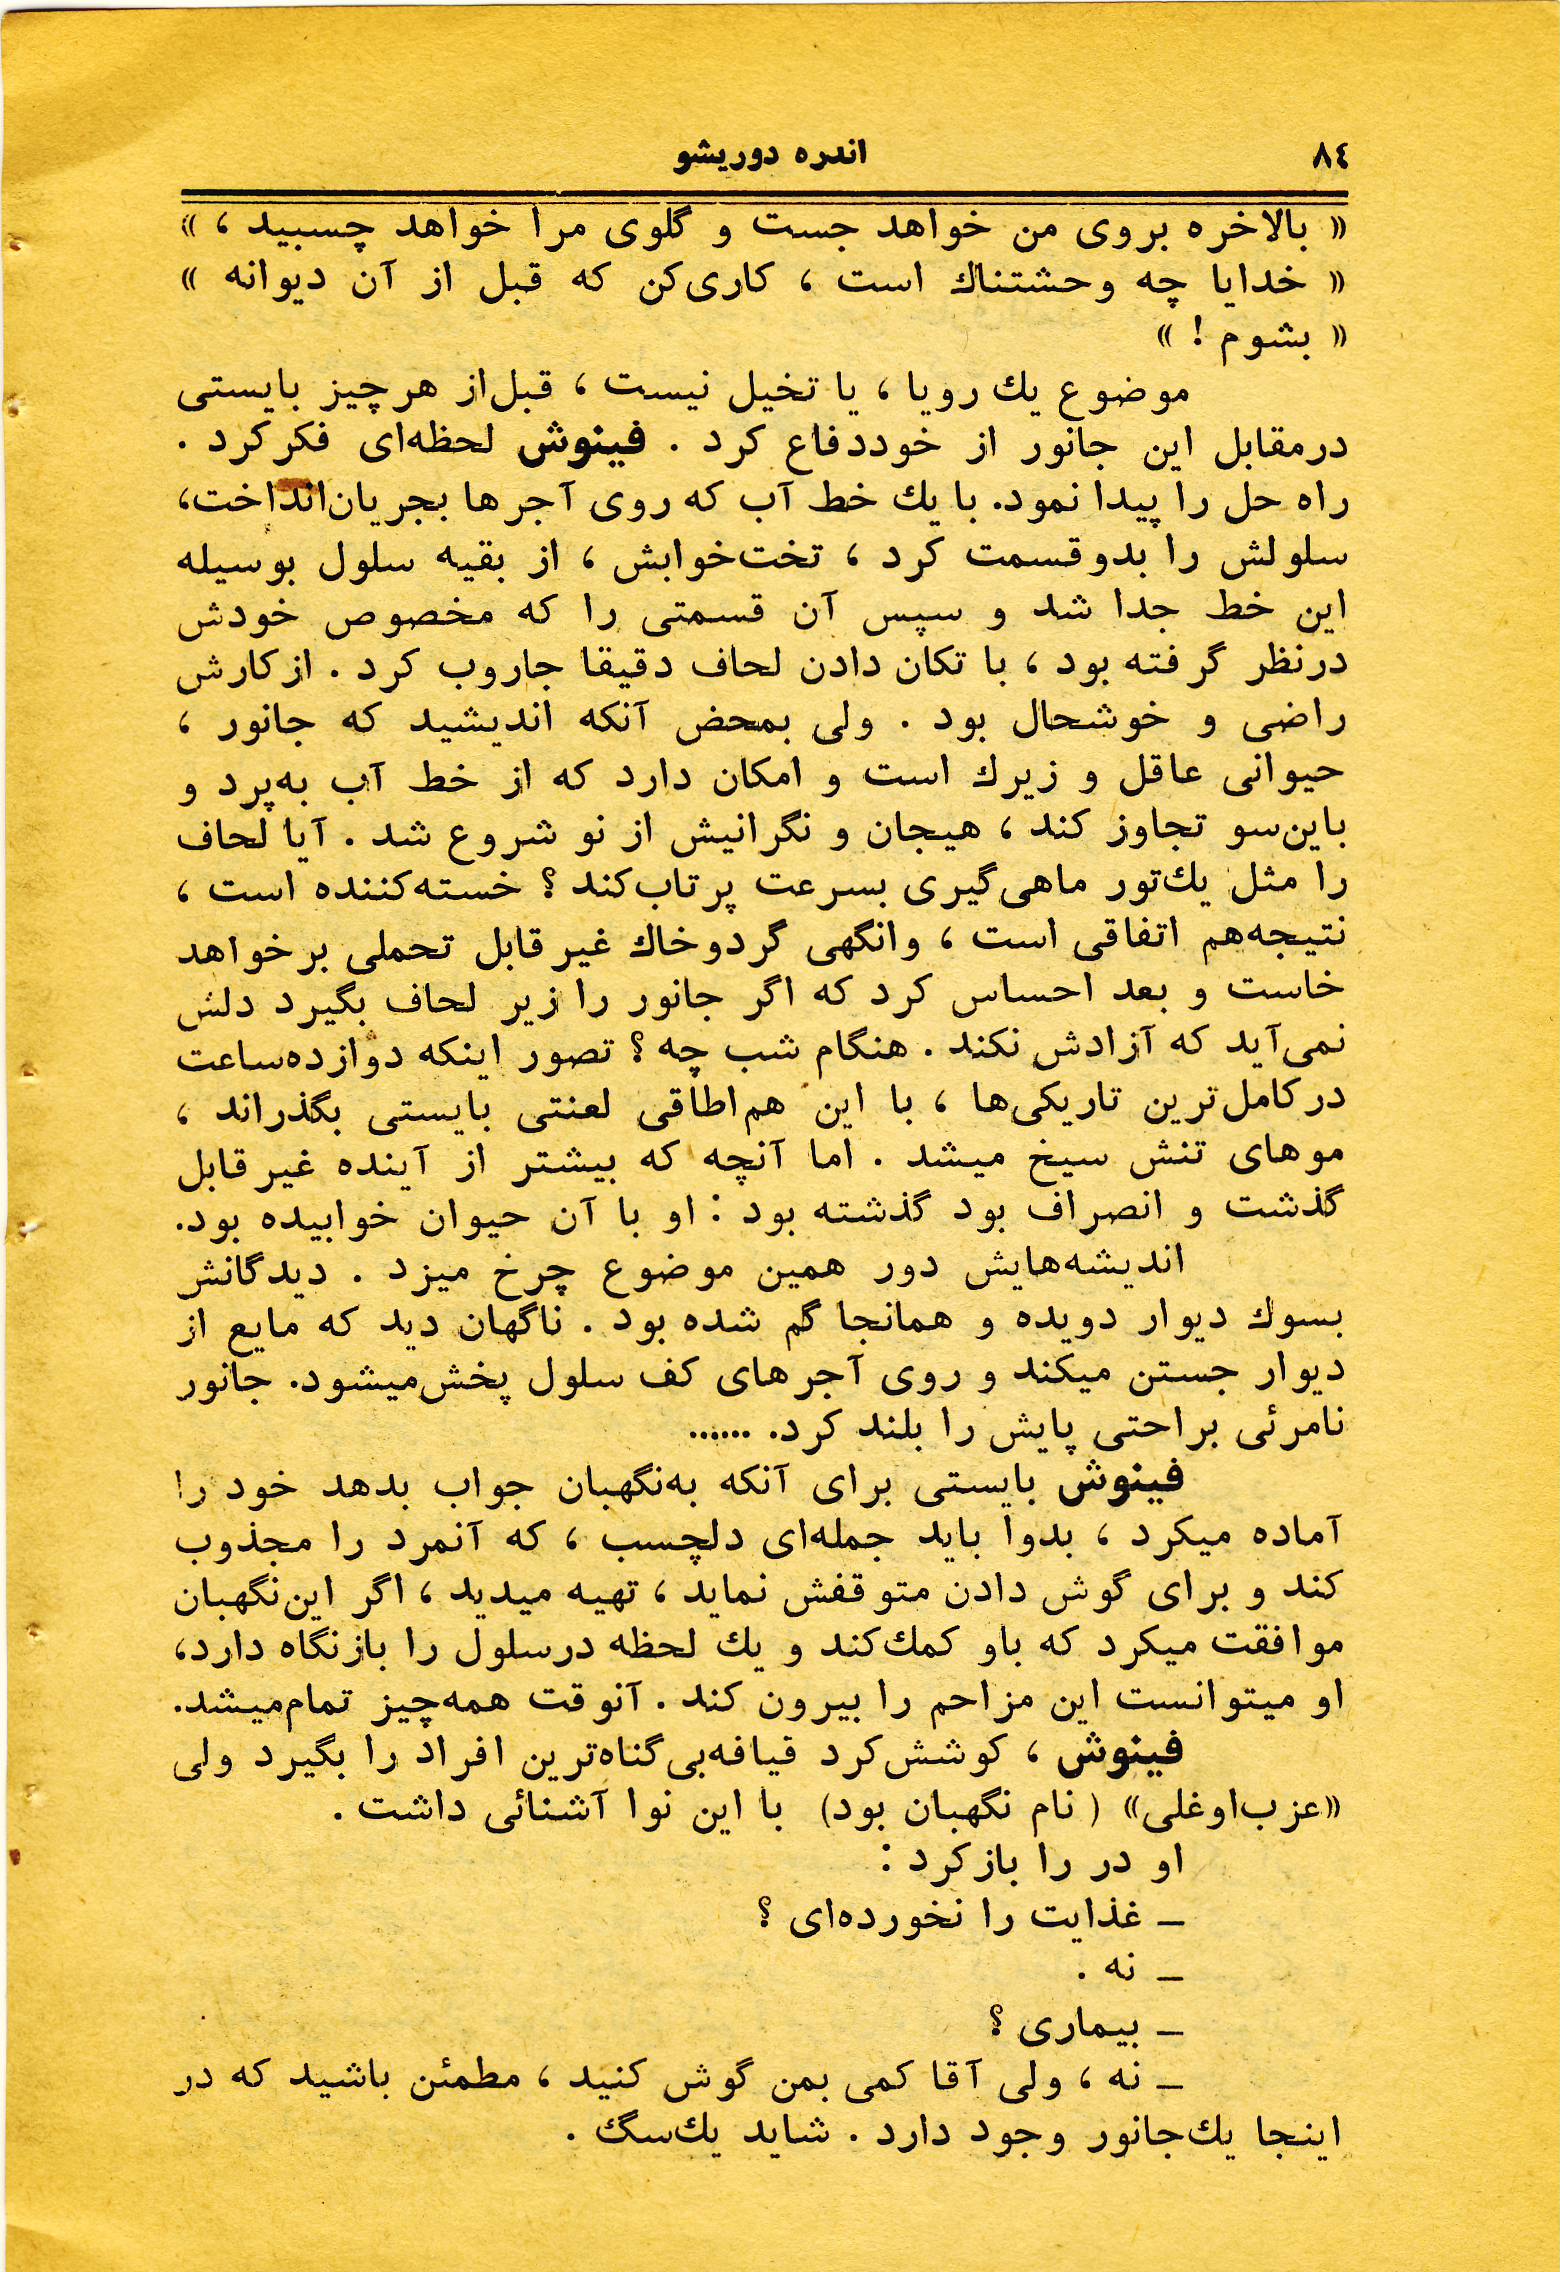 ۸٤
اندره دوریشو
« بالاخره بروی من خواهد جست و گلوی مرا خواهد چسبید ، »
« خدایا چه وحشتناك است ، کاری‌کن که قبل از آن دیوانه »
« بشوم ! »
موضوع یك رویا ، یا تخیل نیست ، قبل‌از هرچیز بایستی
درمقابل این جانور از خوددفاع کرد . فینوش لحظه‌ای فکرکرد .
راه حل را پیدا نمود. با یك خط آب که روی آجرها بجریان‌انداخت،
سلولش را بدوقسمت کرد ، تخت‌خوابش ، از بقیه سلول بوسیله
این خط جدا شد و سپس آن قسمتی را که مخصوص خودش
درنظر گرفته بود ، با تکان دادن لحاف دقیقا جاروب کرد . ازکارش
راضی و خوشحال بود . ولی بمحض آنکه اندیشید که جانور ،
حیوانی عاقل و زیرك است و امکان دارد که از خط آب به‌پرد و
باین‌سو تجاوز کند ، هیجان و نگرانیش از نو شروع شد . آیا لحاف
را مثل یك‌تور ماهی‌گیری بسرعت پرتاب‌کند ؟ خسته‌کننده است ،
نتیجه‌هم اتفاقی است ، وانگهی گردوخاك غیرقابل تحملی برخواهد
خاست و بعد احساس کرد که اگر جانور را زیر لحاف بگیرد دلش
نمی‌آید که آزادش نکند . هنگام شب چه ؟ تصور اینکه دوازده‌ساعت
درکامل‌ترین تاریکی‌ها ، با این هم‌اطاقی لعنتی بایستی بگذراند ،
موهای تنش سیخ میشد . اما آنچه که بیشتر از آینده غیرقابل
گذشت و انصراف بود گذشته بود : او با آن حیوان خوابیده بود.
اندیشه‌هایش دور همین موضوع چرخ میزد . دیدگانش
بسوك دیوار دویده و همانجا گم شده بود . ناگهان دید که مایع از
دیوار جستن میکند و روی آجرهای کف سلول پخش‌میشود. جانور
نامرئی براحتی پایش را بلند کرد. ......
فینوش بایستی برای آنکه به‌نگهبان جواب بدهد خود را
آماده میکرد ، بدوا باید جمله‌ای دلچسب ، که آنمرد را مجذوب
کند و برای گوش دادن متوقفش نماید ، تهیه میدید ، اگر این‌نگهبان
موافقت میکرد که باو کمك‌کند و یك لحظه درسلول را بازنگاه دارد،
او میتوانست این مزاحم را بیرون کند . آنوقت همه‌چیز تمام‌میشد.
فینوش ، کوشش‌کرد قیافه‌بی‌گناه‌ترین افراد را بگیرد ولی
«عزب‌اوغلی» ( نام نگهبان بود) با این نوا آشنائی داشت .
او در را بازکرد :
ـ غذایت را نخورده‌ای ؟
ـ نه .
ـ بیماری ؟
ـ نه ، ولی آقا کمی بمن گوش کنید ، مطمئن باشید که در
اینجا یك‌جانور وجود دارد . شاید یك‌سگ .